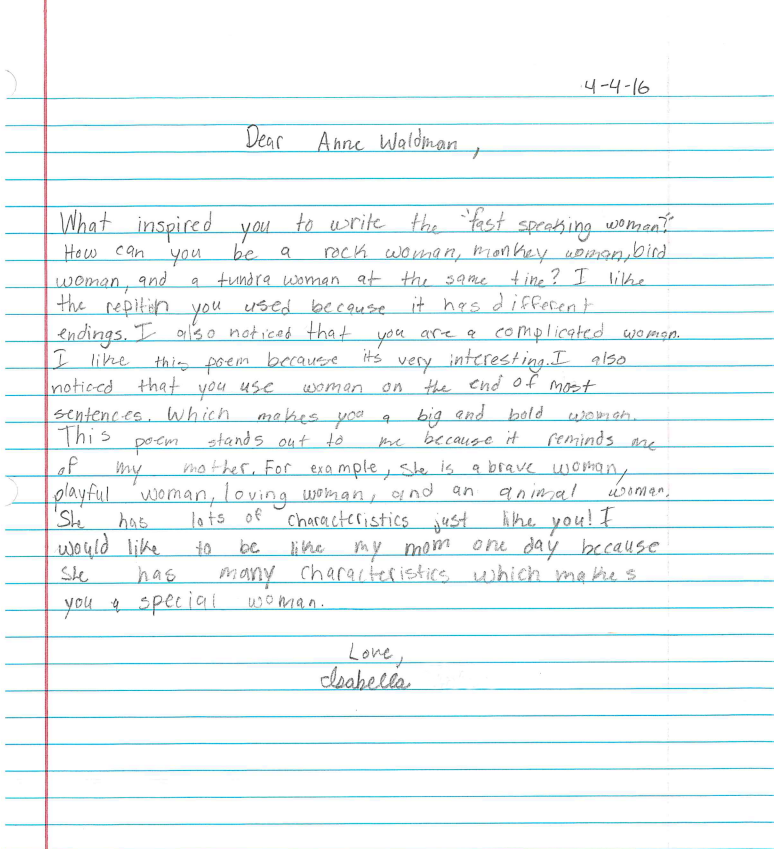 4-4-16
Dear Anne Waldman,
What inspired you to write the "fast speaking woman?"
How can you be a rock woman, monkey woman, bird
woman, and a tundra woman at the same time? I like
the repitin you used because it has different
endings. I also noticed that you are a complicated woman.
I like this poem because its very interesting. I also
noticed that you use woman on the end of most
sentences. Which makes you a big and bold woman.
This poem stands out to me because it reminds me
of my mother. For example, she is a brave woman,
playful woman, loving woman, and an animal woman.
She has lots of characteristics just like you! I
would like to be like my mom one day because
she has many characteristics which makes
you a special woman.
Love,
Isabella